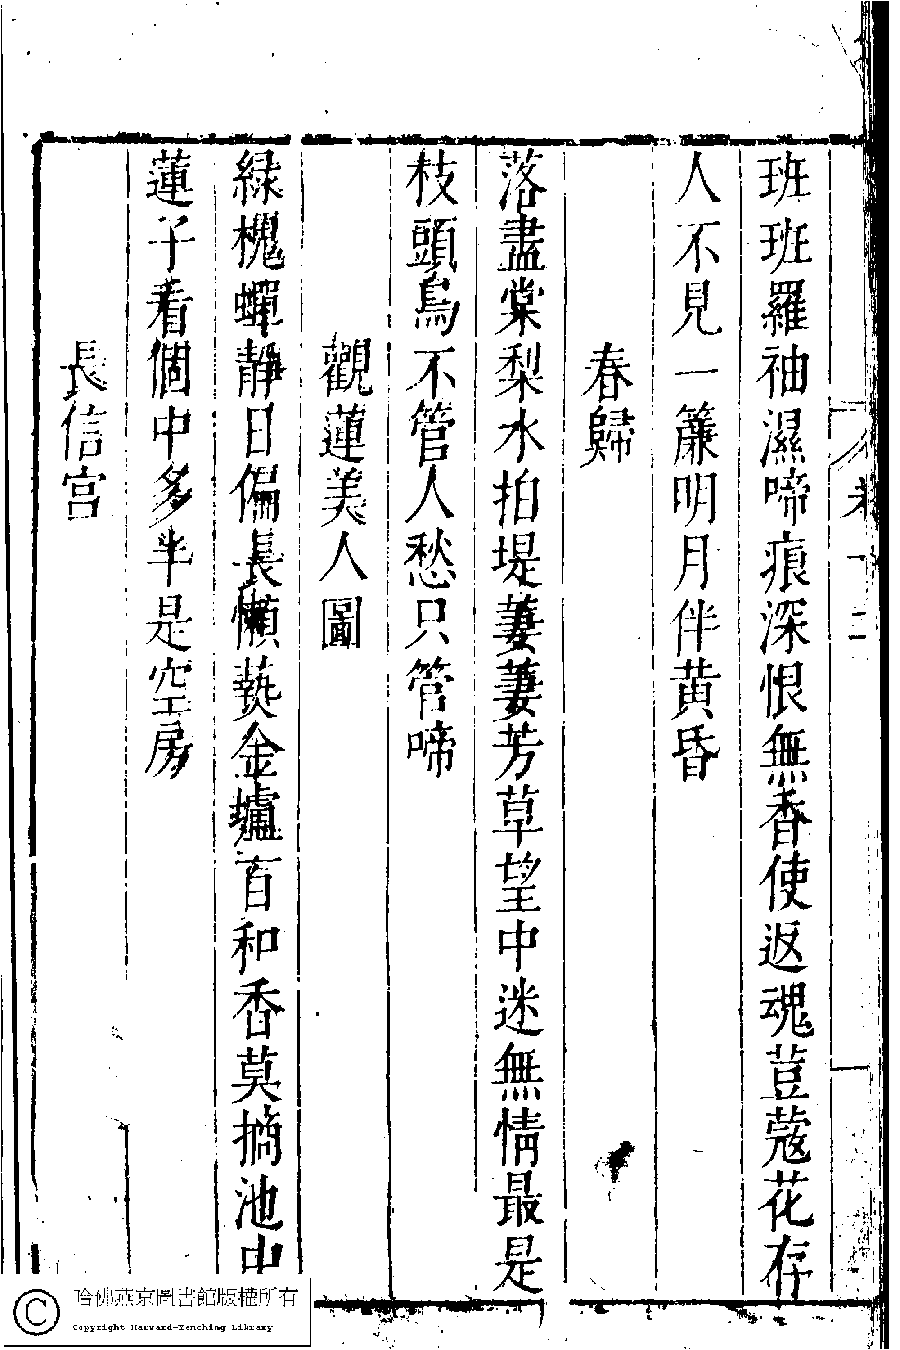 班班羅袖濕啼痕深恨無香使返魂荳蔻花存
人不見一簾明月伴黃昏
春歸
落盡棠梨水拍堤萋萋芳草望中迷無情最是
枝頭鳥不管人愁只管啼
觀蓮美人圖
綠槐蟬靜日偏長懶爇金壚百和香莫摘池中
蓮子看個中多半是空房
長信宮
卷十二
哈佛燕京圖書館版權所有
Copyright Harvard-Yenching Library